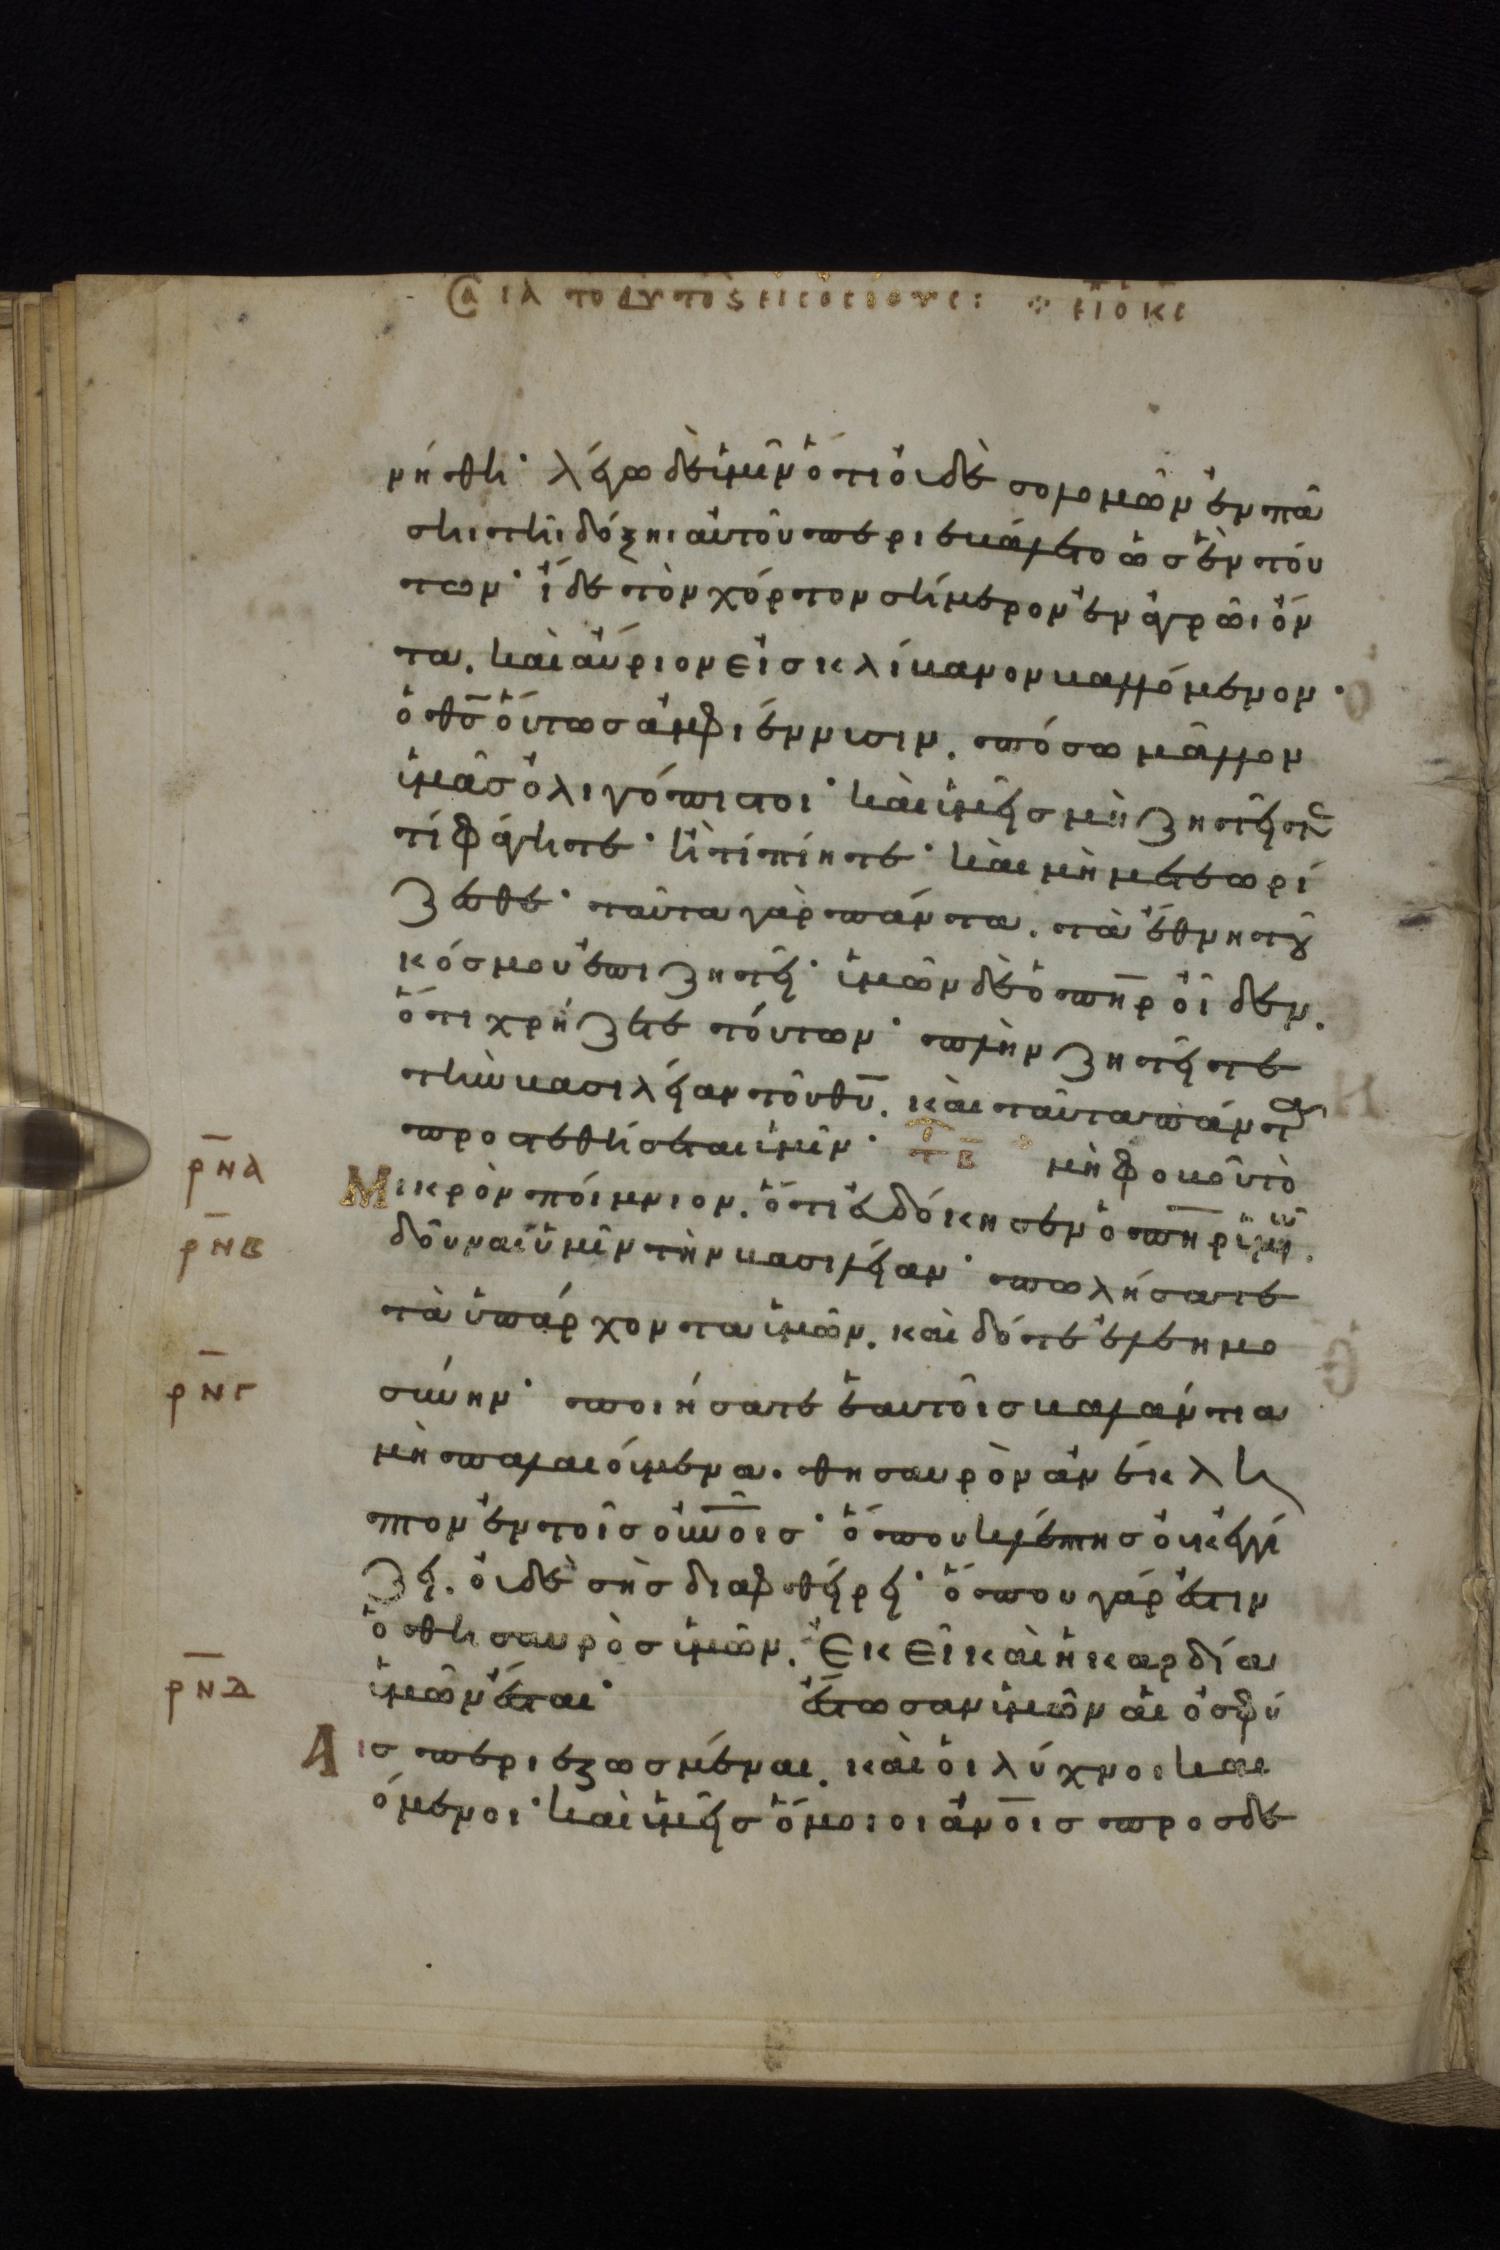 νήθει· λέγω δὲ ὑμῖν ὅτι οὐδὲ σολομῶν ἐν πά
σηι τῆι δόξηι αὐτοῦ περιεβάλετο ὡς ἓν τού
των· ἴδε τὸν χόρτον σήμερον ἐν ἀγρῶι ὄν
τα. καὶ αὔριον εἰς κλίβανον βαλλόμενον·
ὁ θς οὕτως ἀμφιέννυσιν. πόσω μᾶλλον
ὑμᾶς ὀλιγόπιστοι· καὶ ὑμεῖς μὴ ζητεῖτε
τί φάγητε· ἢ τί πίητε· καὶ μὴ μετεωρί
ζεσθε· ταῦτα γὰρ πάντα. τὰ ἔθνη τοῦ
κόσμου ἐπιζητεῖ· ὑμῶν δὲ ὁ πηρ οἶδεν.
ὅτι χρήζετε τούτων· πλὴν ζητεῖτε
τὴν βασιλείαν τοῦ θυ. καὶ ταῦτα πάντα
προστεθήσεται ὑμῖν· μὴ φοβοῦ τὸ
ρνα
Μικρὸν ποίμνιον. ὅτι εὐδόκησεν ὁ πηρ ὑμῶν.
ρνβ
δοῦναι ὑμῖν τὴν βασιλείαν· πωλήσατε
τὰ ὑπάρχοντα ὑμῶν. καὶ δότε ἐλεημο
ρνγ
σύνην· ποιήσατε ἑαυτοῖς βαλάντια
μὴ παλαιούμενα. θησαυρὸν ἀνέκλει
πτον ἐν τοῖς οὐνοῖς· ὅπου κλέπτης οὐκ ἐγγί
ζει. οὐδὲ σὴς διαφθείρει· ὅπου γάρ ἐστιν
ὁ θησαυρὸς ὑμῶν. ἐκεῖ καὶ ἡ καρδία
ρνδ
ὑμῶν ἔσται· ἔστωσαν ὑμῶν αἱ ὀσφύ
Αις περιεζωσμέναι. καὶ οἱ λύχνοι και
όμενοι· καὶ ὑμεῖς ὅμοιοι ἀνοις προσδε